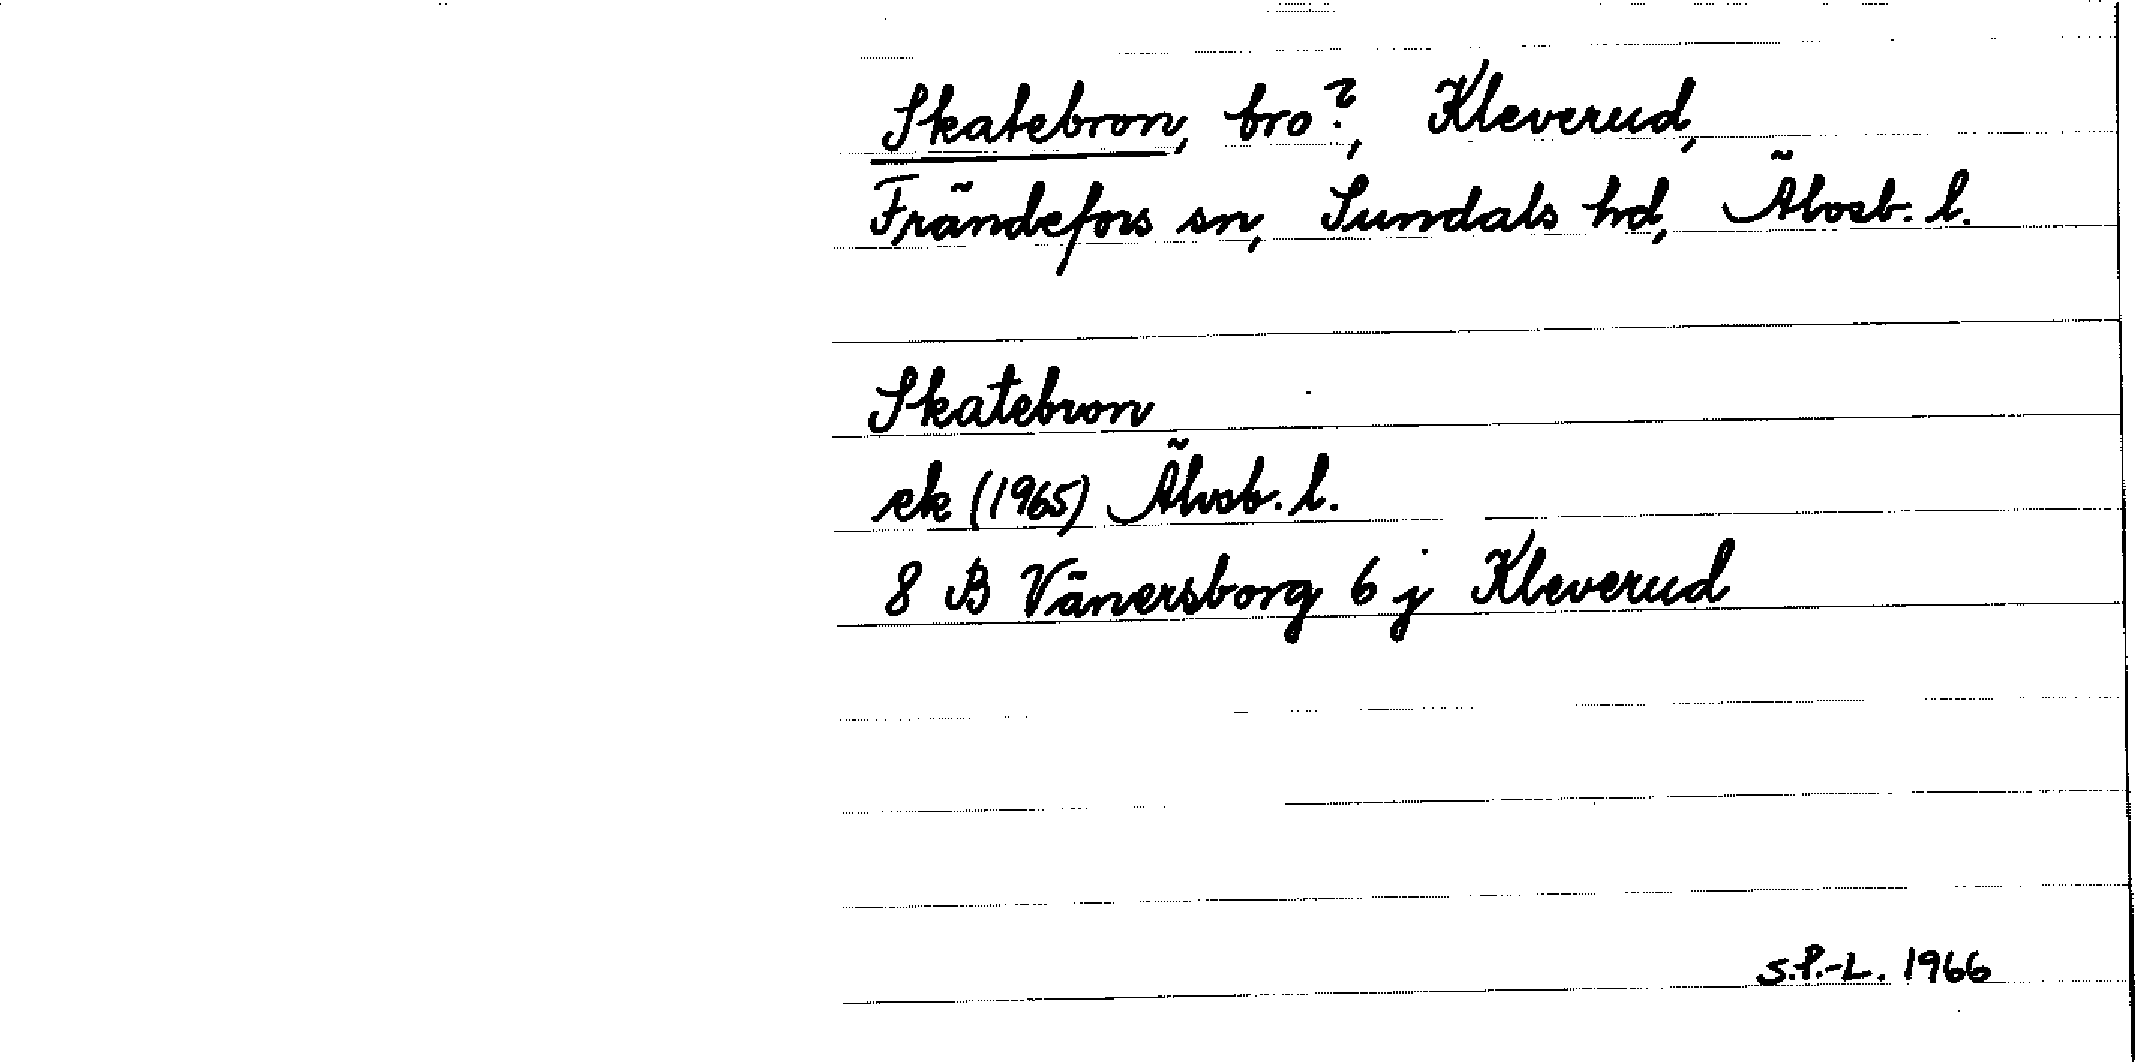 Skatebron, bro?, Kleverud,
Frändefors sn, Sundals hd, Älvsb. l.
Skatebron
ek (1965) Älvsb. l.
8 B Vänersborg 6 j Kleverud
S.P.-L. 1966